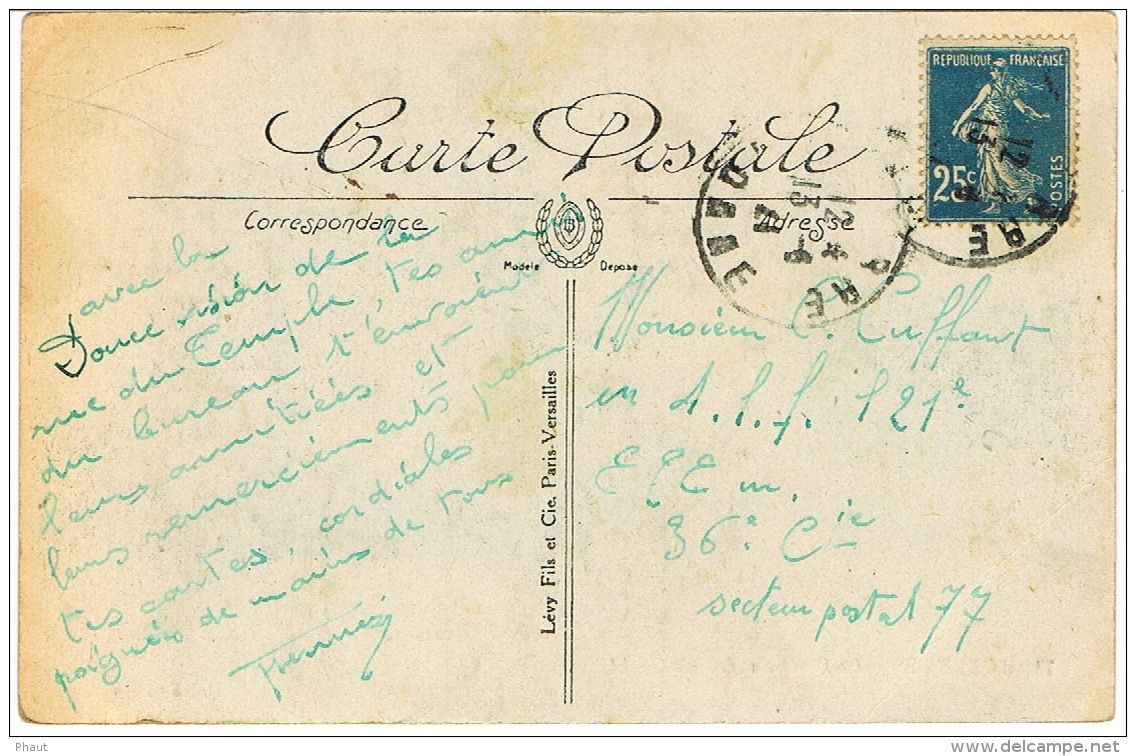 RÉPUBLIQUE FRANÇAISE
25c
POSTES
Carte Postale
Correspondance
Adresse
Modèle Déposé
12
13
avec la
Douce vision de la
rue du Temple, tes amis
du bureau t'envoient
leurs amitiées et
leurs remerciements pour
tes cartes. cordiales
poignées de mains de tous
Lévy Fils et Cie. Paris-Versailles
Monsieur C. Cuffaut
en A.L.f. 121e
36e Cie
secteur postal 77
Phaut
www.delcampe.net